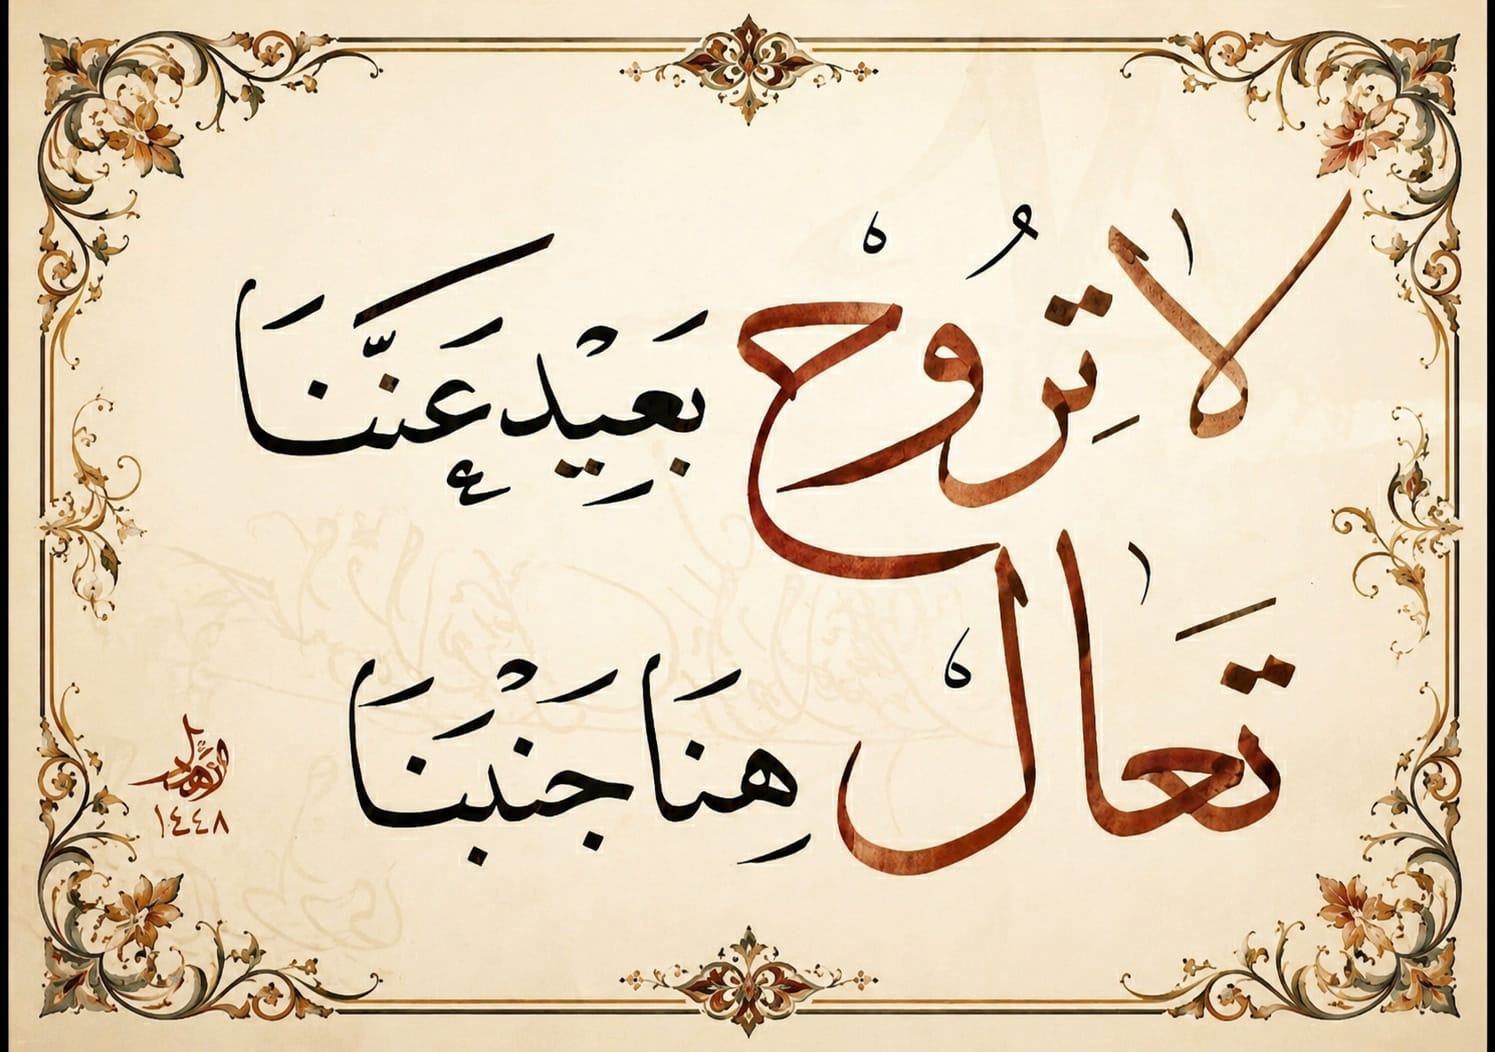 لا تِرُوحْ بَعِيْد عَنَّنَا
تَعَالْ هِنَا جَنْبَنَا
١٤٤٨